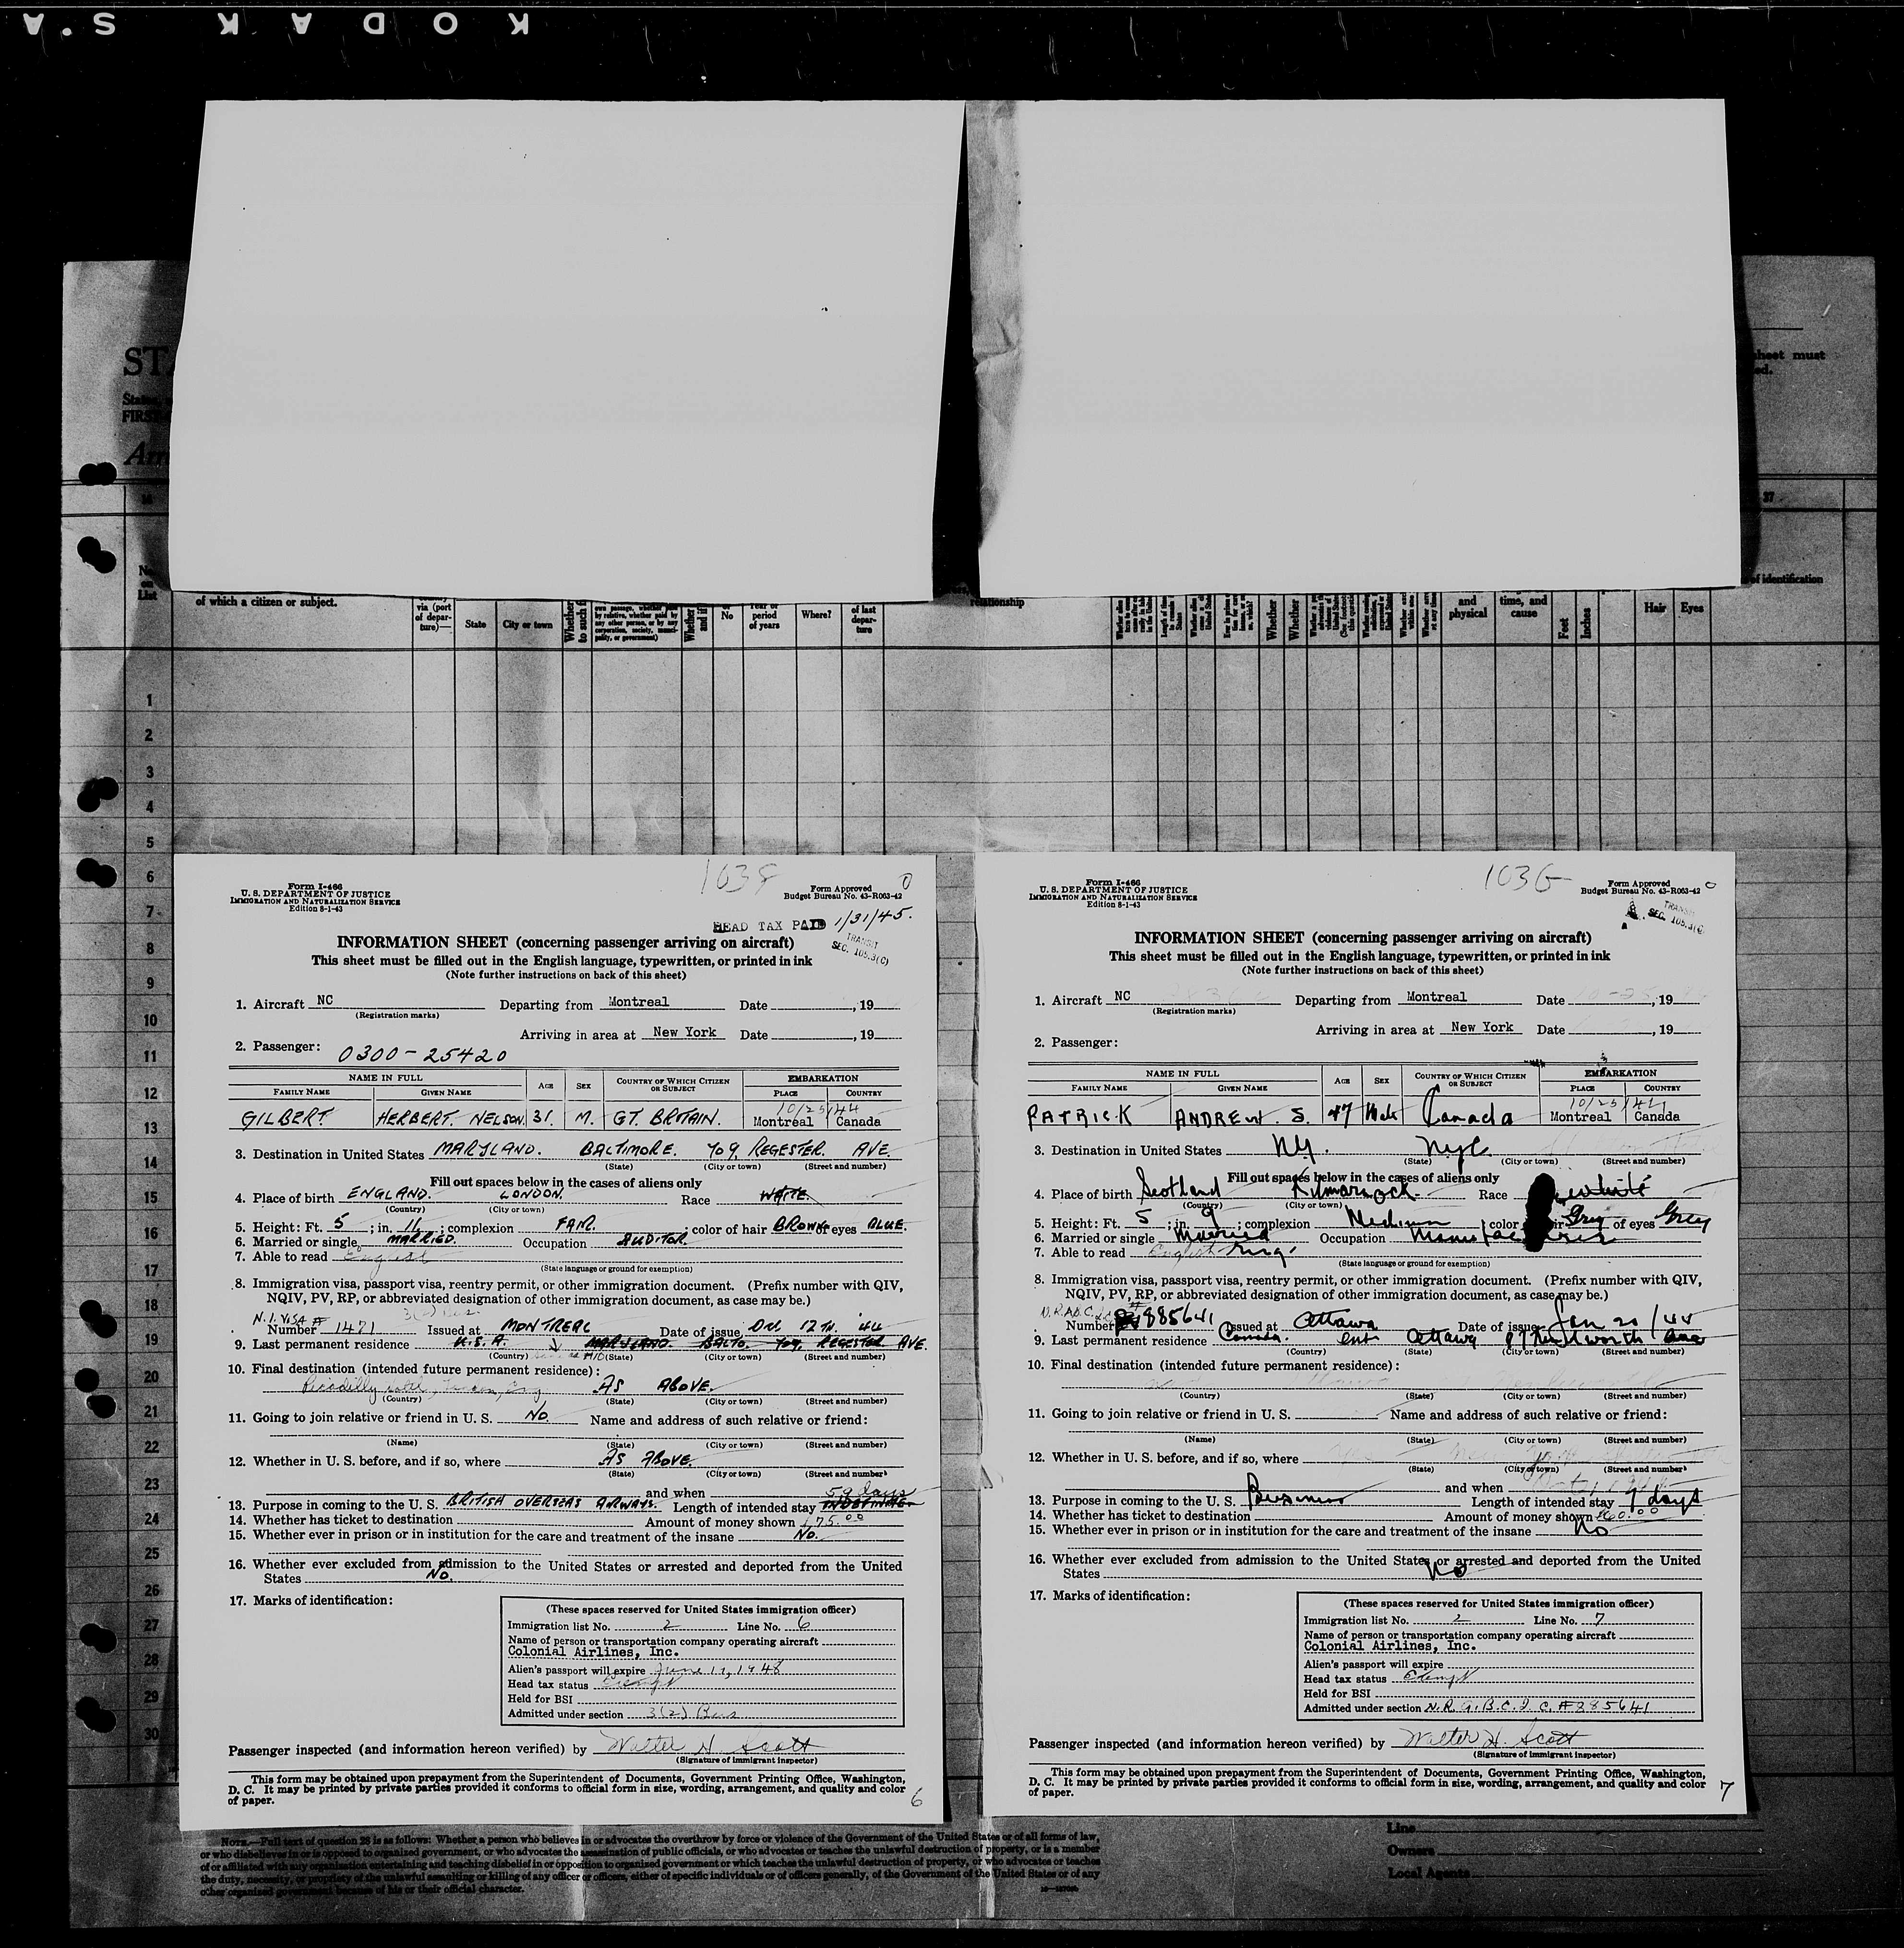 S.A KODAK
STA
FIRS
sheet must
ed.
37
No.
on
List
of which a citizen or subject.
via (port
of depar-
ture)—
State
City or town
No
Year or
period
of years
Where?
of last
depar-
ture
relationship
and
physical
time, and
cause
Feet
Inches
of identification
Hair
Eyes
1
2
3
4
5
6
7
8
9
10
11
12
13
14
15
16
17
18
19
20
21
22
23
24
25
26
27
28
29
30
1038
Form I-466
U. S. DEPARTMENT OF JUSTICE
IMMIGRATION AND NATURALIZATION SERVICE
Edition 8-1-43
Form Approved
Budget Bureau No. 43-R063-42
HEAD TAX PAID 1/31/45.
TRANSIT
SEC. 105.3(C)
INFORMATION SHEET (concerning passenger arriving on aircraft)
This sheet must be filled out in the English language, typewritten, or printed in ink
(Note further instructions on back of this sheet)
1. Aircraft NC Departing from Montreal Date , 19
(Registration marks)
Arriving in area at New York Date , 19
2. Passenger: 0300-25420
NAME IN FULL AGE SEX COUNTRY OF WHICH CITIZEN OR SUBJECT EMBARKATION
FAMILY NAME GIVEN NAME PLACE COUNTRY
10/25/44
GILBERT HERBERT. NELSON. 31. M. GT. BRITAIN. Montreal Canada
3. Destination in United States MARYLAND. BALTIMORE. 709, REGESTER. AVE.
(State) (City or town) (Street and number)
Fill out spaces below in the cases of aliens only
4. Place of birth ENGLAND. LONDON. Race WHITE
(Country) (City or town)
5. Height: Ft. 5; in. 11; complexion FAIR.; color of hair BROWN of eyes BLUE.
6. Married or single MARRIED. Occupation AUDITOR.
7. Able to read English
(State language or ground for exemption)
8. Immigration visa, passport visa, reentry permit, or other immigration document. (Prefix number with QIV,
NQIV, PV, RP, or abbreviated designation of other immigration document, as case may be.)
N.I. VISA # 3(2) Bus.
Number 1471 Issued at MONTREAL Date of issue Oct. 17 TH. 44
9. Last permanent residence U.S.A. MARYLAND. BALTO. 709, REGESTER AVE.
(Country) (State) (City or town) (Street and number)
10. Final destination (intended future permanent residence):
Picadilly AS ABOVE.
(Country) (State) (City or town) (Street and number)
11. Going to join relative or friend in U. S. NO. Name and address of such relative or friend:
(Name) (State) (City or town) (Street and number)
12. Whether in U. S. before, and if so, where AS ABOVE.
(State) (City or town) (Street and number)
and when 59 days
13. Purpose in coming to the U. S. BRITISH OVERSEAS AIRWAYS. Length of intended stay INDEFINITE
14. Whether has ticket to destination Amount of money shown 175.00
15. Whether ever in prison or in institution for the care and treatment of the insane NO.
16. Whether ever excluded from admission to the United States or arrested and deported from the United
States NO.
17. Marks of identification:
(These spaces reserved for United States immigration officer)
Immigration list No. 2 Line No. 6
Name of person or transportation company operating aircraft
Colonial Airlines, Inc.
Alien's passport will expire June 11, 1948
Head tax status Exempt
Held for BSI
Admitted under section 3(2) Bus
Passenger inspected (and information hereon verified) by Walter H. Scott
(Signature of immigrant inspector)
This form may be obtained upon prepayment from the Superintendent of Documents, Government Printing Office, Washington,
D. C. It may be printed by private parties provided it conforms to official form in size, wording, arrangement, and quality and color
of paper.
6
103G
Form I-466
U. S. DEPARTMENT OF JUSTICE
IMMIGRATION AND NATURALIZATION SERVICE
Edition 8-1-43
Form Approved
Budget Bureau No. 43-R063-42
TRANSIT
SEC. 105.3(C)
INFORMATION SHEET (concerning passenger arriving on aircraft)
This sheet must be filled out in the English language, typewritten, or printed in ink
(Note further instructions on back of this sheet)
1. Aircraft NC Departing from Montreal Date 10-25, 19
(Registration marks)
Arriving in area at New York Date , 19
2. Passenger:
NAME IN FULL AGE SEX COUNTRY OF WHICH CITIZEN OR SUBJECT EMBARKATION
FAMILY NAME GIVEN NAME PLACE COUNTRY
10/25/44
PATRICK ANDREW. S. 47 Male Canada Montreal Canada
3. Destination in United States NY. NYC
(State) (City or town) (Street and number)
Fill out spaces below in the cases of aliens only
4. Place of birth Scotland Kilmarnock Race White
(Country) (City or town)
5. Height: Ft. 5; in. 9; complexion Medium; color of hair Grey of eyes Grey
6. Married or single Married Occupation
7. Able to read English
(State language or ground for exemption)
8. Immigration visa, passport visa, reentry permit, or other immigration document. (Prefix number with QIV,
NQIV, PV, RP, or abbreviated designation of other immigration document, as case may be.)
Number 885641 Issued at Ottawa Date of issue Jan 20/44
9. Last permanent residence Canada. Ont Ottawa
(Country) (State) (City or town) (Street and number)
10. Final destination (intended future permanent residence):
(Country) (State) (City or town) (Street and number)
11. Going to join relative or friend in U. S. Name and address of such relative or friend:
(Name) (State) (City or town) (Street and number)
12. Whether in U. S. before, and if so, where
(State) (City or town) (Street and number)
and when
13. Purpose in coming to the U. S. Business Length of intended stay 9 days
14. Whether has ticket to destination Amount of money shown 60.00
15. Whether ever in prison or in institution for the care and treatment of the insane No
16. Whether ever excluded from admission to the United States or arrested and deported from the United
States No
17. Marks of identification:
(These spaces reserved for United States immigration officer)
Immigration list No. 2 Line No. 7
Name of person or transportation company operating aircraft
Colonial Airlines, Inc.
Alien's passport will expire
Head tax status Exempt
Held for BSI
Admitted under section N.R.A.B.C.I.C. #885641
Passenger inspected (and information hereon verified) by Walter H. Scott
(Signature of immigrant inspector)
This form may be obtained upon prepayment from the Superintendent of Documents, Government Printing Office, Washington,
D. C. It may be printed by private parties provided it conforms to official form in size, wording, arrangement, and quality and color
of paper.
7
NOTE.—Full text of question 28 is as follows: Whether a person who believes in or advocates the overthrow by force or violence of the Government of the United States or of all forms of law,
or who disbelieves in or is opposed to organized government, or who advocates the assassination of public officials, or who advocates or teaches the unlawful destruction of property, or is a member
of or affiliated with any organization entertaining and teaching disbelief in or opposition to organized government or which teaches the unlawful destruction of property, or who advocates or teaches
the duty, necessity, or propriety of the unlawful assaulting or killing of any officer or officers, either of specific individuals or of officers generally, of the Government of the United States or of any
other organized government because of his or their official character.
Line
Owners
Local Agents